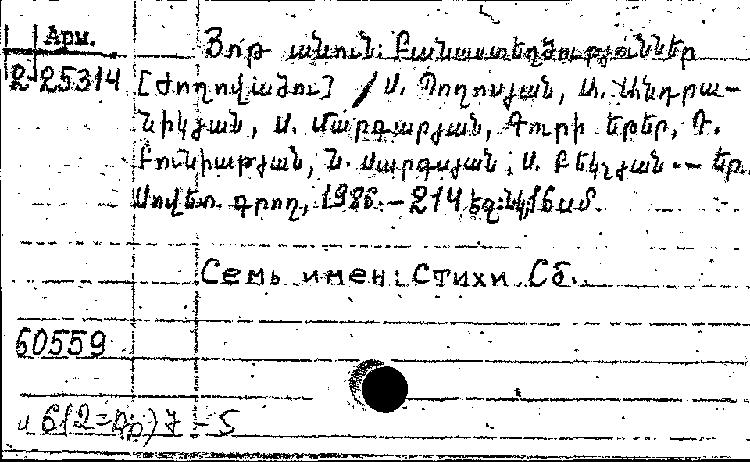 Арм.
Յոթ անուն: Բանաստեղծություններ
2-25314 [Ժողովածու] / Ս. Պողոսյան, Ա. Անդրա-
նիկյան, Ս. Մարգարյան, Գուրի Եբեր, Դ.
Բունիաթյան, Ն. Սարգսյան, Ս. Բեկչյան -- Եր.
Սովետ. գրող, 1986. - 214 էջ: նկ, 16 սմ.
Семь имен: Стихи Сб.
60559
612=Ар) 7 - 5